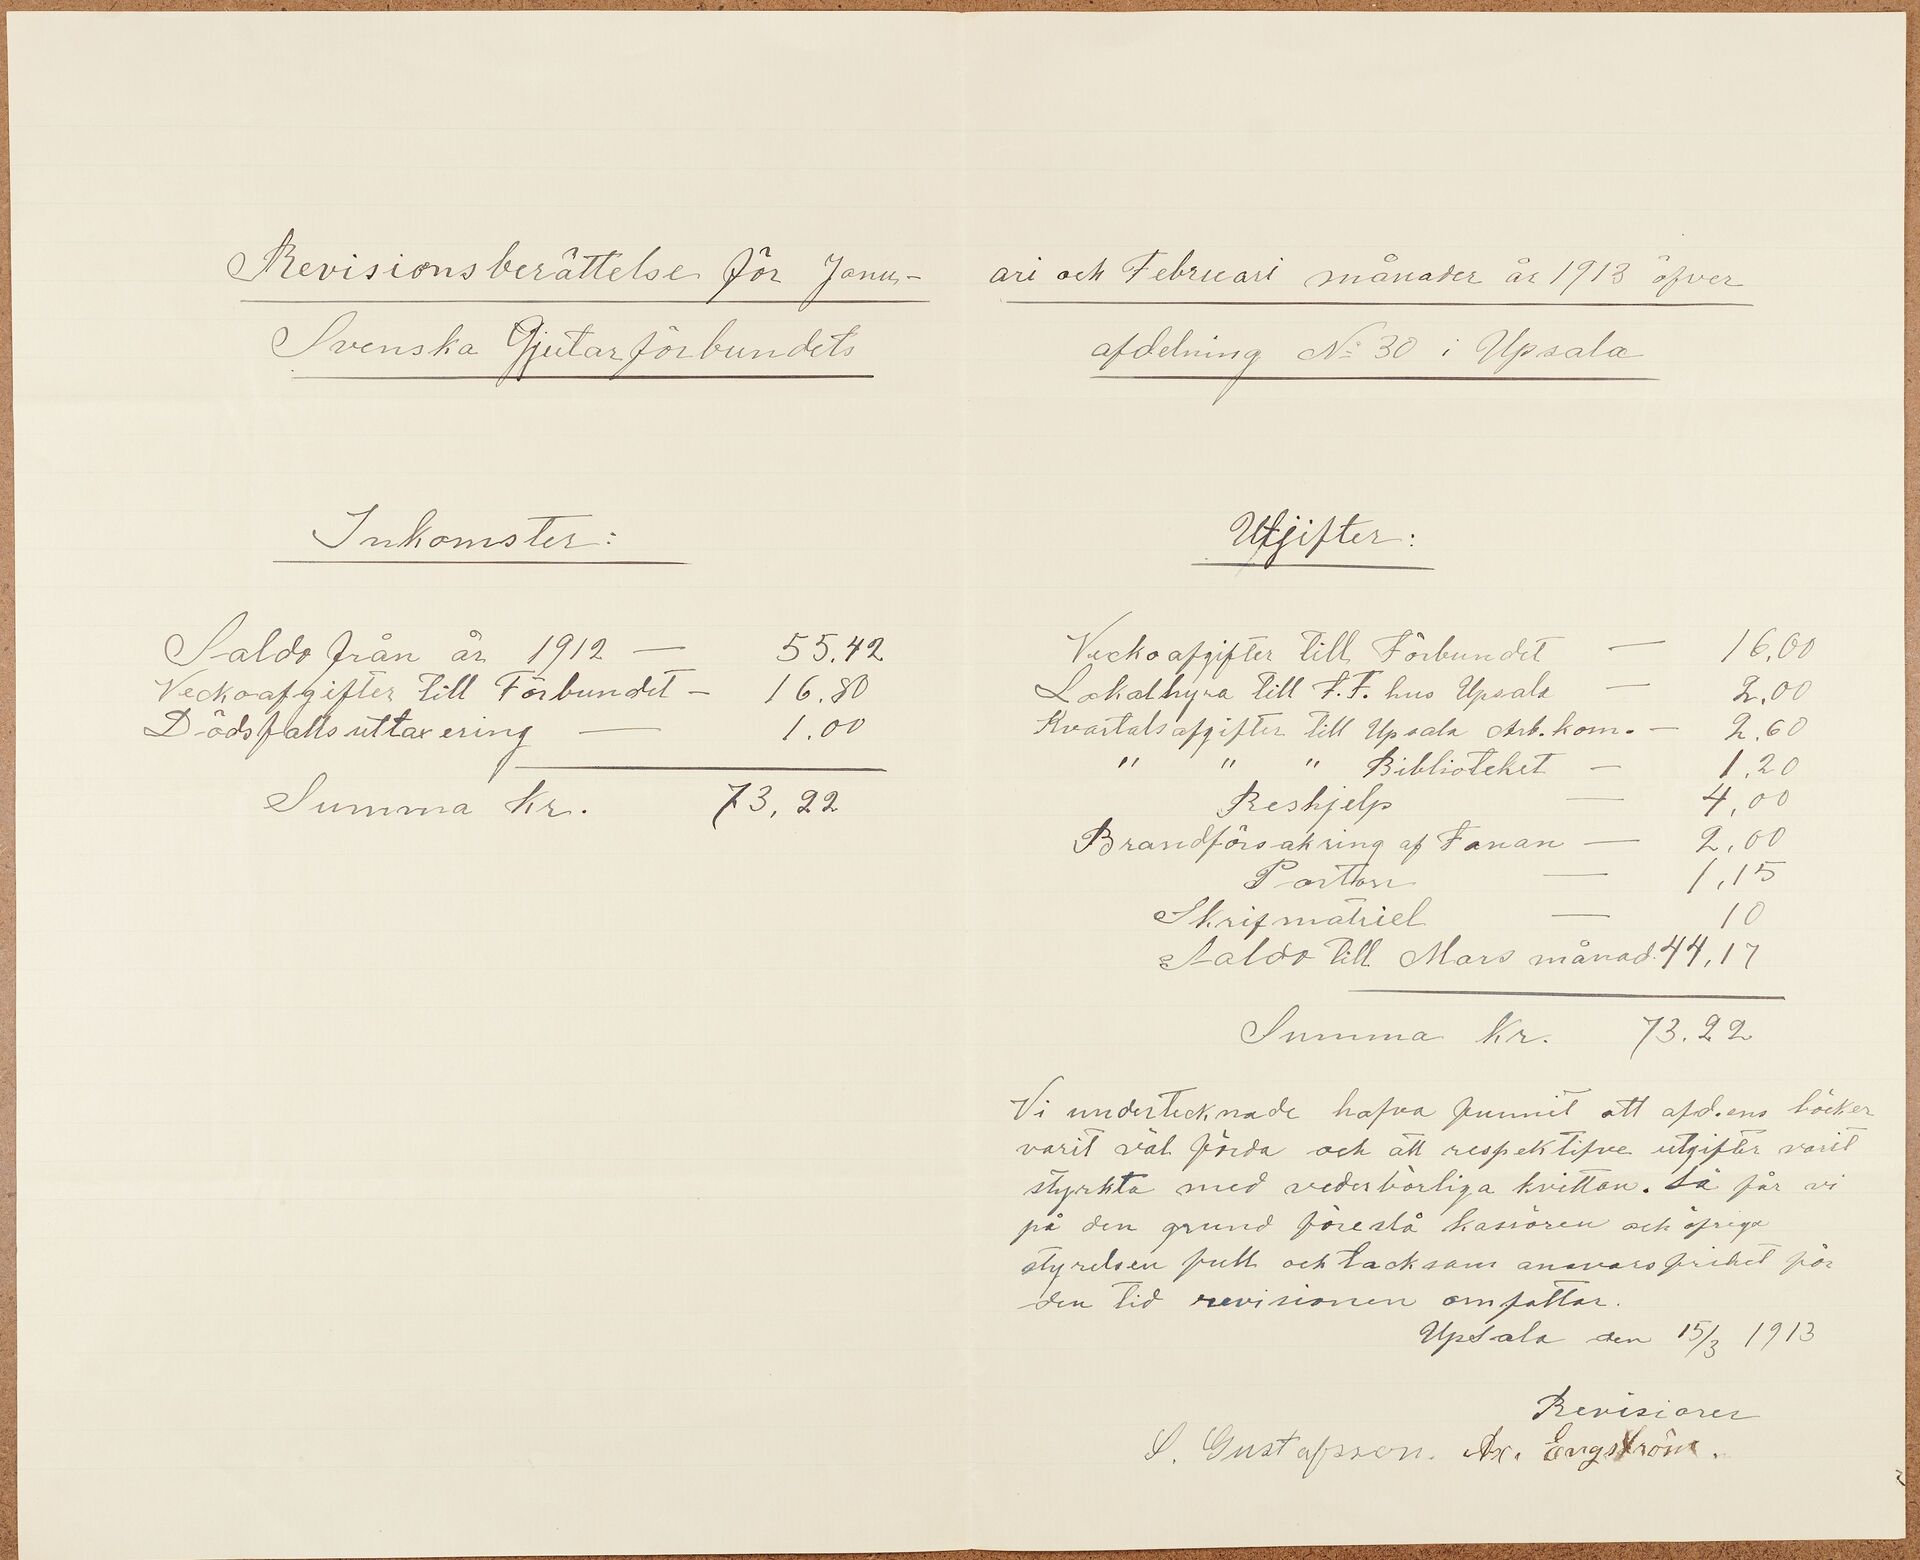 Revisionsberättelse för Janu-
ari och Februari månader år 1913 öfver
Svenska Gjutarförbundets
afdelning No 30 i Upsala
Inkomster:
Saldo från år 1912 — 55.42
Veckoafgifter till Förbundet — 16.80
Dödsfallsuttaxering — 1.00
Summa Kr. 73,22
Utgifter:
Veckoafgifter till Förbundet — 16,00
Lokalhyra till F.F. hus Upsala — 2,00
Kvartalsafgifter till Upsala Arb.kom. — 2,60
" " " Biblioteket — 1,20
Reshjelp — 4,00
Brandförsakring af Fanan — 2,00
Porton — 1,15
Skrifmatriel — 10
Saldo till Mars månad. 44,17
Summa Kr. 73.22
Vi undertecknade hafva funnit att afd.ens böcker
varit väl förda och att respektifve utgifter varit
styrkta med vederbörliga kvitton. Så får vi
på den grund föreslå kassören och öfriga
styrelsen full och tacksam ansvarsfrihet för
den tid revisionen omfattar.
Upsala den 15/3 1913
Revisiorer
S. Gustafsson. Ax. Engström.